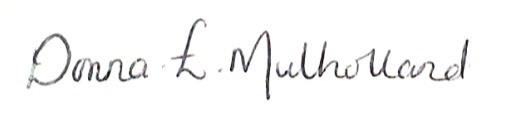 Donna E. Mulholland